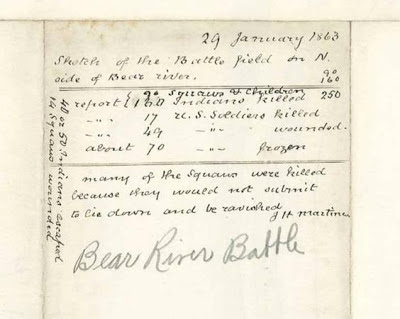 29 January 1863
Sketch of the Battle field on N.
side of Bear river.
90
160
250
{ 90 Squaws & Children
report { 160 Indians killed
-"- 17 U.S. Soldiers killed
-"- 49 -"- wounded.
about 70 -"- frozen
40 or 50 Indians escaped
14 Squaws wounded
many of the Squaws were killed
because they would not submit
to lie down and be ravished
J H Martineau
Bear River Battle